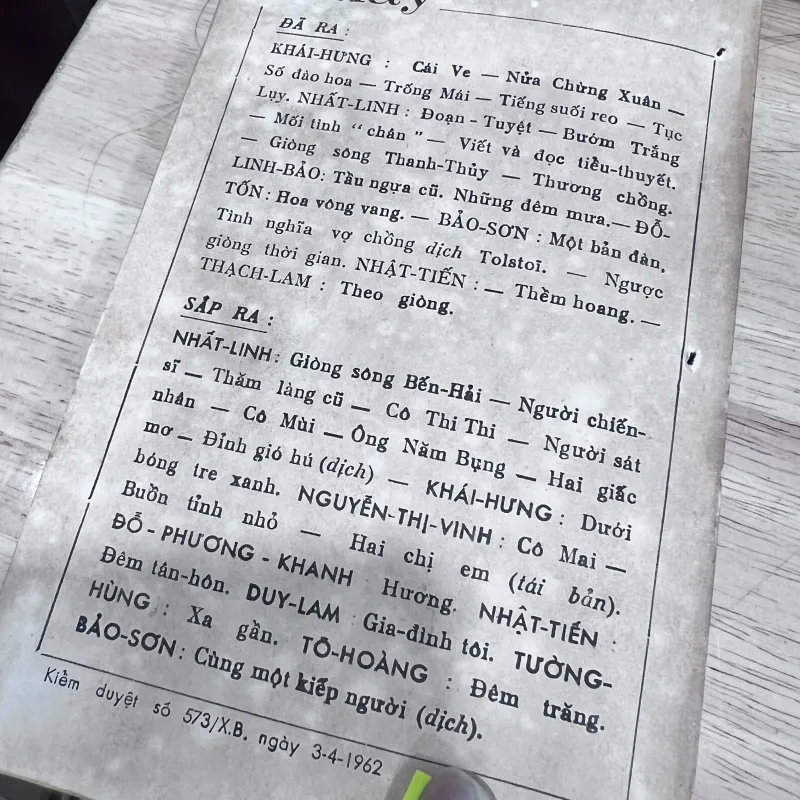 ĐÃ RA :
KHÁI-HƯNG : Cái Ve — Nửa Chừng Xuân —
Số đào hoa — Trống Mái — Tiếng suối reo — Tục
Lụy. NHẤT-LINH : Đoạn - Tuyệt — Bướm Trắng
— Mối tình “ chân ” — Viết và đọc tiểu-thuyết.
— Giòng sông Thanh-Thủy — Thương chồng.
LINH-BẢO: Tầu ngựa cũ. Những đêm mưa.— ĐỖ-
TỐN: Hoa vông vang. — BẢO-SƠN : Một bản đàn,
Tình nghĩa vợ chồng dịch Tolstoï. — Ngược
giòng thời gian. NHẬT-TIẾN : — Thềm hoang. —
THẠCH-LAM : Theo giòng.
SẮP RA :
NHẤT-LINH: Giòng sông Bến-Hải — Người chiến-
sĩ — Thăm làng cũ — Cô Thi Thi — Người sát
nhân — Cô Mùi — Ông Năm Bụng — Hai giấc
mơ — Đỉnh gió hú (dịch) — KHÁI-HƯNG : Dưới
bóng tre xanh. NGUYỄN-THỊ-VINH : Cô Mai —
Buồn tỉnh nhỏ — Hai chị em (tái bản).
ĐỖ - PHƯƠNG - KHANH Hương. NHẬT-TIẾN :
Đêm tân-hôn. DUY-LAM Gia-đình tôi. TƯỜNG-
HÙNG : Xa gần. TÔ-HOÀNG : Đêm trăng.
BẢO-SƠN: Cùng một kiếp người (dịch).
Kiểm duyệt số 573/X.B. ngày 3-4-1962